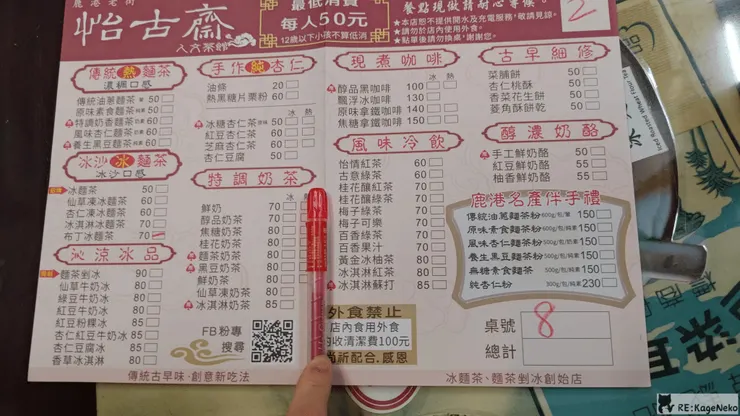 鹿港老街
怡古齋
人文茶館
最低消費
每人50元
12歲以下小孩不算低消
餐點現做請耐心等候。
★本店恕不提供開水及充電服務,敬請見諒。
★請勿於店內使用外食。
★點單後請勿換桌,謝謝您。
2
傳統熱麵茶
濃稠口感
傳統油蔥麵茶 50
原味素食麵茶 50
特調奶香麵茶 60
風味杏仁麵茶 60
養生黑豆麵茶 60
冰沙冰麵茶
冰沙口感
冰麵茶 50
仙草凍冰麵茶 60
杏仁凍冰麵茶 60
冰淇淋冰麵茶 70
布丁冰麵茶 70
沁涼冰品
麵茶剉冰 90
仙草牛奶冰 80
綠豆牛奶冰 80
紅豆牛奶冰 80
紅豆粉粿冰 85
杏仁紅豆牛奶冰 85
杏仁豆腐冰 85
香草冰淇淋 80
手作純杏仁
油條 20
熱黑糖片栗粉 60
冰 熱
冰糖杏仁茶 50
紅豆杏仁茶 60
芝麻杏仁茶 60
杏仁豆腐 50
特調奶茶
冰
鮮奶 70
醇品奶茶 70
焦糖奶茶 80
桂花奶茶 80
麵茶奶茶 80
黑豆奶茶 80
鮮奶茶 80
仙草凍奶茶 80
冰淇淋奶茶 85
FB粉專
搜尋
現煮咖啡
冰 熱
醇品黑咖啡 100
飄浮冰咖啡 130
原味拿鐵咖啡 140
焦糖拿鐵咖啡 150
風味冷飲
怡情紅茶 60
古意綠茶 60
桂花釀紅茶 70
桂花釀綠茶 70
梅子綠茶 70
梅子可樂 70
百香綠茶 70
百香果汁 70
黃金冰柚茶 80
冰淇淋紅茶 85
冰淇淋蘇打 85
外食禁止
店內食用外食
酌收清潔費100元
尚祈配合.感恩
古早細修
菜脯餅 50
杏仁桃酥 50
香菜花生餅 50
菱角酥餅乾 50
醇濃奶酪
手工鮮奶酪 50
紅豆鮮奶酪 55
柚香鮮奶酪 55
鹿港名產伴手禮
傳統油蔥麵茶粉 600g/包/葷 150
原味素食麵茶粉 600g/包/純素 150
風味杏仁麵茶粉 600g/包/奶素 150
養生黑豆麵茶粉 500g/包/純素 150
無糖素食麵茶粉 500g/包/純素 150
純杏仁粉 300g/包/純素 230
桌號 8
總計
傳統古早味、創意新吃法
冰麵茶、麵茶剉冰創始店
Iced Roasted Wheat Flour Tea
RE:KageNeko